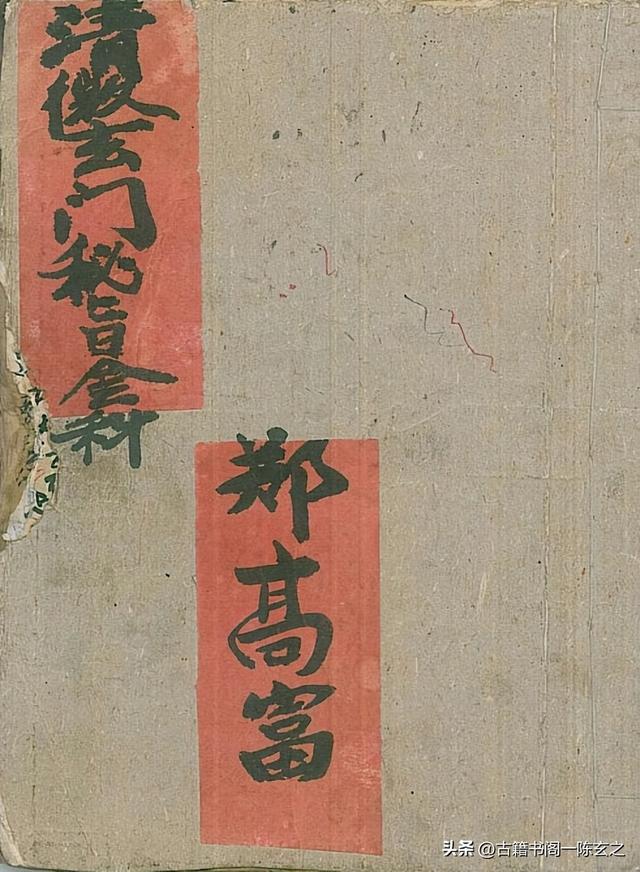 清微玄门秘旨金科
郑高富
头条 @古籍书阁一陈玄之